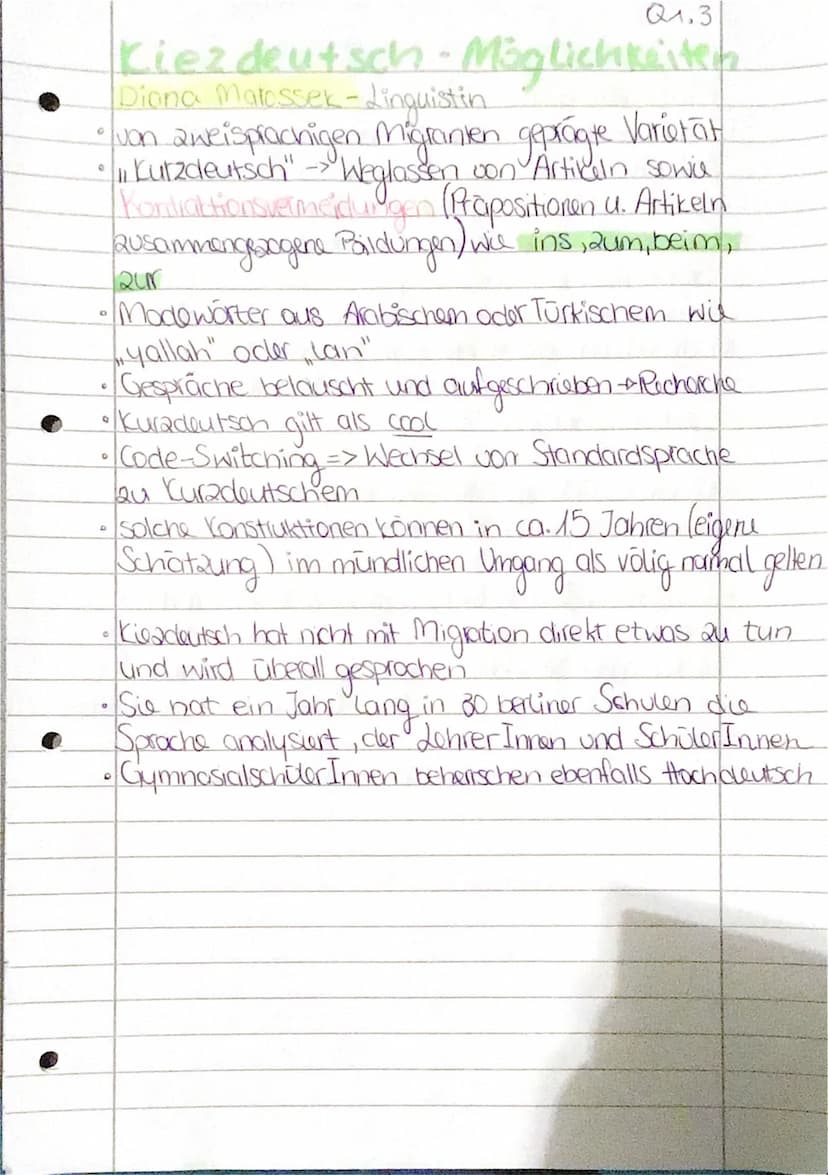 Q1.3
Kiezdeutsch - Möglichkeiten
Diana Marossek - Linguistin
• von zweisprachigen Migranten geprägte Varietät
• „Kurzdeutsch" -> Weglassen von Artikeln sowie
Kontraktionsvermeidungen (Präpositionen u. Artikeln
zusammengezogene Bildungen) wie ins, zum, beim,
zur
• Modewörter aus Arabischem oder Türkischem wie
„yallah" oder „lan"
• Gespräche belauscht und aufgeschrieben -> Richerche
• Kurzdeutsch gilt als cool
• Code-Switching => Wechsel von Standardsprache
zu Kurzdeutschem
• solche Konstruktionen können in ca. 15 Jahren (eigene
Schätzung) im mündlichen Umgang als völig normal gelten
• Kiezdeutsch hat nicht mit Migration direkt etwas zu tun
und wird überall gesprochen
• Sie hat ein Jahr lang in 30 berliner Schulen die
Sprache analysiert, der LehrerInnen und SchülerInnen
• GymnasialschülerInnen beherrschen ebenfalls Hochdeutsch